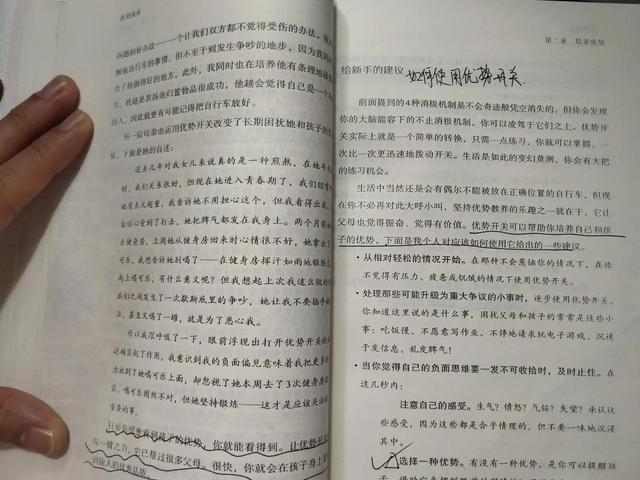 问题的好办法——一个让我们双方都不觉得受伤的办法。
频临自行车的事情,但不至于到发生争吵的地步,因为我
出了他做得好的地方。此外,我同时也在培养他有条理地
力。我越是表扬他归置物品很成功,他越会觉得自己是一个
的人,因此就更有可能记得把自行车放好。
另一位母亲也运用优势开关改变了长期困扰她和孩子的
下面是她的自述:
过去几年对我女儿来说真的是一种煎熬,在她年
时,我们关系很好,但现在她进入青春期了,我们经常
她有点儿超重,我告诉她不用担心这个,但我看得出来
自信心受到了打击,她把脾气都发在我身上。两个月前
去健身房,上周她从健身房回来时心情很不好,她拿出了
可乐,我想告诉她别喝了——在健身房挥汗如雨地锻炼
马上喝可乐,有什么意义呢?但我想起上次我这么做的
我们之间发生了一次歇斯底里的争吵,她让我不要插手她
活,甚至又喝了一罐,就是为了恶心我。
所以我深呼吸了一下,眼前浮现出打开优势开关的
这确实起了作用,我意识到我的负面偏见意味着我把更多
力放到了她喝可乐上面,却忽视了她本周去了3次健身房
实。喝可乐固然不对,但她坚持锻炼——这才是应该关注的
重要的事。
看到孩子的优势,你就能看得到。让优势开关
一臂之力,它已帮过很多父母。很快,你就会在孩子身上
第二章 培养优势
给新手的建议 如何使用优势开关
前面提到的4种消极机制是不会奇迹般凭空消失的,但你会发现
你的大脑能容下的不止消极机制,你可以凌驾于它们之上。优势开
关实际上就是一个简单的转换,只需一点练习,你就可以掌握,一
次比一次更迅速地拨动开关。生活是如此的变幻莫测,你会有大把
的练习机会。
生活中当然还是会有偶尔不能被放在正确位置的自行车,但现
在你不必再对此大呼小叫,坚持优势教养的乐趣之一就在于,它让
父母也觉得振奋、觉得有价值。优势开关可以帮助你培养自己和孩
子的优势,下面是我个人对应该如何使用它给出的一些建议。
• 从相对轻松的情况开始。在那种不会惹恼你的情况下,在你
不觉得有压力、疲惫或饥饿的情况下使用优势开关。
• 处理那些可能升级为重大争议的小事时,逐步使用优势开关。
你知道这里说的是什么事,困扰父母和孩子的常常是这些小
事:吃饭慢、不愿意写作业、不停地请求玩电子游戏、沉迷
于发信息、乱发脾气!
• 当你觉得自己的负面思维要一发不可收拾时,及时止住。在
这几秒内:
注意自己的感受。生气?愤怒?气馁?失望?承认这
些感受,因为这些都是合乎情理的,但不要一味地沉浸
其中。
选择一种优势。有没有一种优势,是你可以提醒